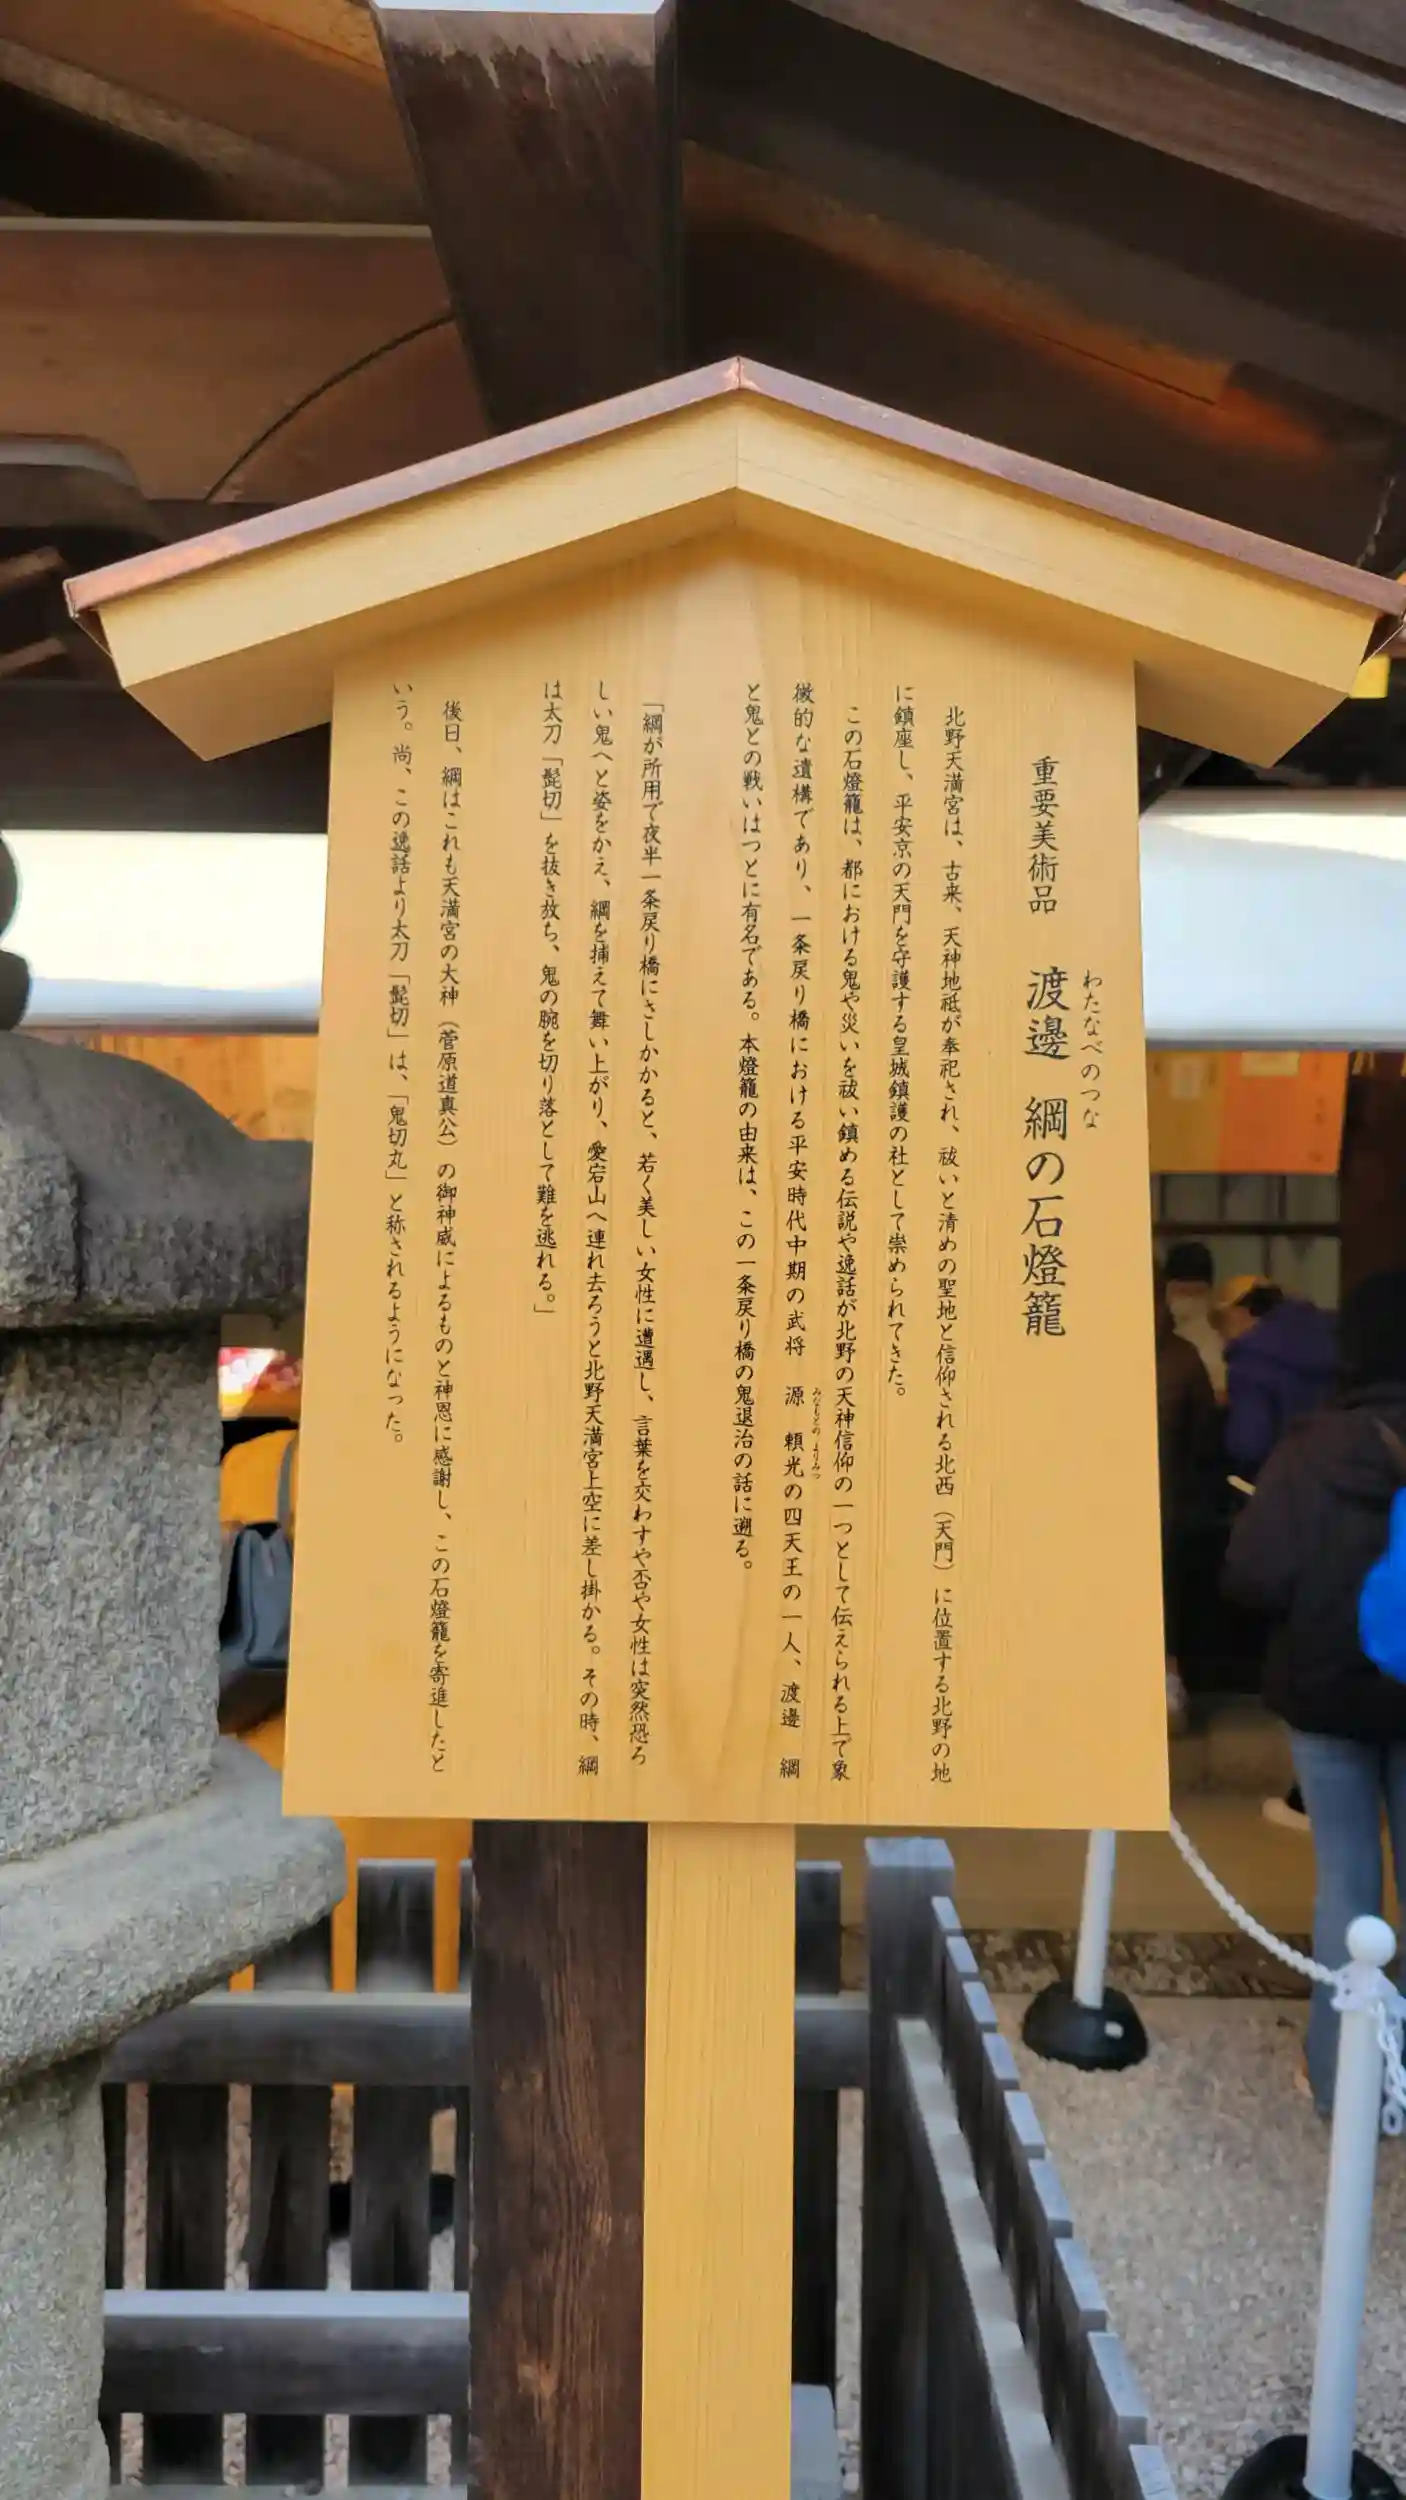 重要美術品　渡邊　綱の石燈籠
わたなべのつな
北野天満宮は、古来、天神地祇が奉祀され、祓いと清めの聖地と信仰される北西（天門）に位置する北野の地
に鎮座し、平安京の天門を守護する皇城鎮護の社として崇められてきた。
この石燈籠は、都における鬼や災いを祓い鎮める伝説や逸話が北野の天神信仰の一つとして伝えられる上で象
みなもとの よりみつ
徴的な遺構であり、一条戻り橋における平安時代中期の武将　源　頼光の四天王の一人、渡邊　綱
と鬼との戦いはつとに有名である。本燈籠の由来は、この一条戻り橋の鬼退治の話に遡る。
「綱が所用で夜半一条戻り橋にさしかかると、若く美しい女性に遭遇し、言葉を交わすや否や女性は突然恐ろ
しい鬼へと姿をかえ、綱を捕えて舞い上がり、愛宕山へ連れ去ろうと北野天満宮上空に差し掛かる。その時、綱
は太刀「髭切」を抜き放ち、鬼の腕を切り落として難を逃れる。」
後日、綱はこれも天満宮の大神（菅原道真公）の御神威によるものと神恩に感謝し、この石燈籠を寄進したと
いう。尚、この逸話より太刀「髭切」は、「鬼切丸」と称されるようになった。